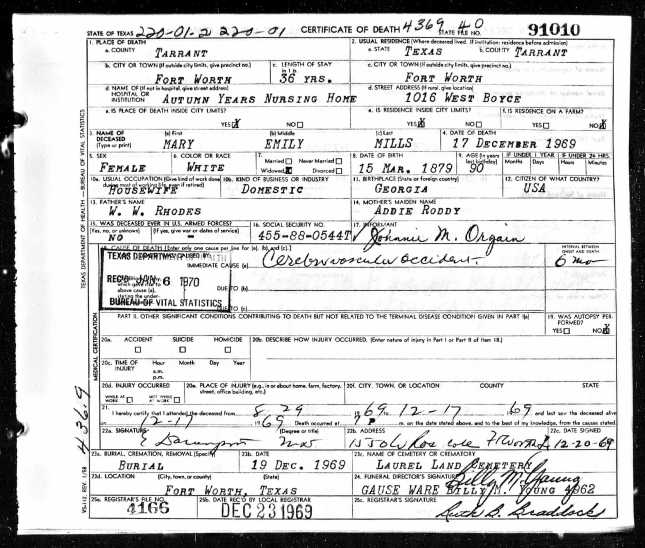 STATE OF TEXAS 220-01-2 220-01 CERTIFICATE OF DEATH 4369 40 STATE FILE NO. 91010
1. PLACE OF DEATH 2. USUAL RESIDENCE (Where deceased lived. If institution: residence before admission)
a. COUNTY TARRANT a. STATE TEXAS b. COUNTY TARRANT
b. CITY OR TOWN (If outside city limits, give precinct no.) c. LENGTH OF STAY in 1 b c. CITY OR TOWN (If outside city limits, give precinct no.)
FORT WORTH 36 YRS. FORT WORTH
d. NAME OF (If not in hospital, give street address) HOSPITAL OR INSTITUTION AUTUMN YEARS NURSING HOME d. STREET ADDRESS (If rural, give location) 1016 WEST BOYCE
e. IS PLACE OF DEATH INSIDE CITY LIMITS? e. IS RESIDENCE INSIDE CITY LIMITS? f. IS RESIDENCE ON A FARM?
YES X NO YES X NO YES NO X
3. NAME OF DECEASED (Type or print) (a) First (b) Middle (c) Last 4. DATE OF DEATH
MARY EMILY MILLS 17 DECEMBER 1969
5. SEX 6. COLOR OR RACE 7. Married Never Married 8. DATE OF BIRTH 9. AGE (In years last birthday) IF UNDER 1 YEAR IF UNDER 24 HRS.
Months Days Hours Minutes
FEMALE WHITE Widowed X Divorced 15 MAR. 1879 90
10a. USUAL OCCUPATION (Give kind of work done during most of working life, even if retired) 10b. KIND OF BUSINESS OR INDUSTRY 11. BIRTHPLACE (State or foreign country) 12. CITIZEN OF WHAT COUNTRY?
HOUSEWIFE DOMESTIC GEORGIA USA
13. FATHER'S NAME 14. MOTHER'S MAIDEN NAME
W. W. RHODES ADDIE RODDY
15. WAS DECEASED EVER IN U.S. ARMED FORCES? 16. SOCIAL SECURITY NO. 17. INFORMANT
(Yes, no, or unknown) (If yes, give war or dates of service)
NO - 455-88-0544T Johnnie M. Orgain
18. CAUSE OF DEATH [Enter only one cause per line for (a), (b), and (c).] INTERVAL BETWEEN ONSET AND DEATH
TEXAS DEPARTMENT OF HEALTH
IMMEDIATE CAUSE (a) Cerebrovascular accident. 6 mo
REC'D JAN 6 1970
DUE TO (b)
BUREAU OF VITAL STATISTICS
DUE TO (c)
PART II. OTHER SIGNIFICANT CONDITIONS CONTRIBUTING TO DEATH BUT NOT RELATED TO THE TERMINAL DISEASE CONDITION GIVEN IN PART I(a) 19. WAS AUTOPSY PERFORMED?
YES NO X
20a. ACCIDENT SUICIDE HOMICIDE 20b. DESCRIBE HOW INJURY OCCURRED. (Enter nature of injury in Part I or Part II of item 18.)
20c. TIME OF INJURY Hour a.m. p.m. Month Day Year
20d. INJURY OCCURRED 20e. PLACE OF INJURY (e.g., in or about home, farm, factory, street, office building, etc.) 20f. CITY, TOWN, OR LOCATION COUNTY STATE
WHILE AT WORK NOT WHILE AT WORK
21. I hereby certify that I attended the deceased from 8 29 1969, to 12-17 1969 and last saw the deceased alive
on 12-17 1969 Death occurred at m. on the date stated above, and to the best of my knowledge, from the causes stated.
22a. SIGNATURE (Degree or title) 22b. ADDRESS 22c. DATE SIGNED
12-20-69
23a. BURIAL, CREMATION, REMOVAL (Specify) 23b. DATE 23c. NAME OF CEMETERY OR CREMATORY
BURIAL 19 DEC. 1969 LAUREL LAND CEMETERY
23d. LOCATION (City, town, or county) (State) 24. FUNERAL DIRECTOR'S SIGNATURE Billy M. Young
FORT WORTH, TEXAS GAUSE WARE BILLY M. YOUNG 4962
25a. REGISTRAR'S FILE NO. 25b. DATE REC'D BY LOCAL REGISTRAR 25c. REGISTRAR'S SIGNATURE
4166 DEC 23 1969 Ruth B. Braddock
TEXAS DEPARTMENT OF HEALTH—BUREAU OF VITAL STATISTICS
MEDICAL CERTIFICATION
436.9
VS-112, REV. 1/58